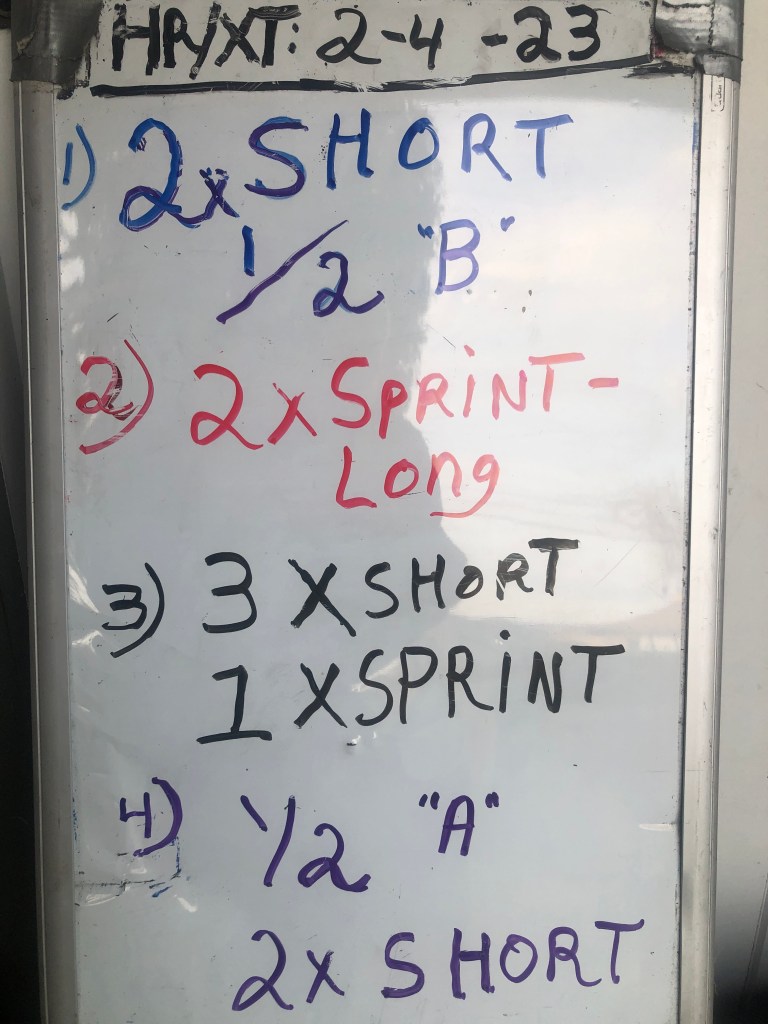 HR/XT: 2-4-23
1) 2x SHORT
1/2 "B"
2) 2x SPRINT-
Long
3) 3 X SHORT
1 X SPRINT
4) 1/2 "A"
2x SHORT